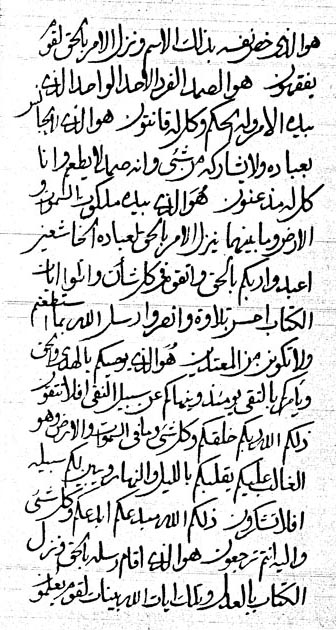 هو الذی خص نفسه بذلك الاسم و نزل الامر بالحق لقوم
یفقهون هو الصمد الفرد الاحد الواحد الذی
بیده الامر و له الحکم و کل له قانتون هو الذی
بعباده و لا یشارکه من شیٔ و انه صمد لا یطعم و انا
کل له مذعنون هو الذی بیده ملکوت السموات و
الارض و ما بینهما ینزل الامر بالحق لعباده الخاشعین
اعبدوا ربکم بالحق و اتقوه فی کل شأن و اتلوا ایات
الکتاب احسن تلاوة و انصروا رسل الله بما استطعتم
و لا تکونن من المعتدین هو الذی یوصیکم بالهدی و الحق
و یأمرکم بالتقی یومئذ و ینهاکم عن سبیل النفی افلا تتقون
ذلکم الله ربکم خلقکم و کل شیٔ و ما فی السموات و الارض و هو
الغالب علیکم یقلبکم باللیل و النهار و یبین لکم سبیله
افلا تشکرون ذلکم الله مبدعکم ابدعکم و کل شیٔ
و الیه انتم ترجعون هو الذی اقام رسله بالحق و نزل
الکتاب بالعدل و تلك ایات الله بینات لقوم یعلمون